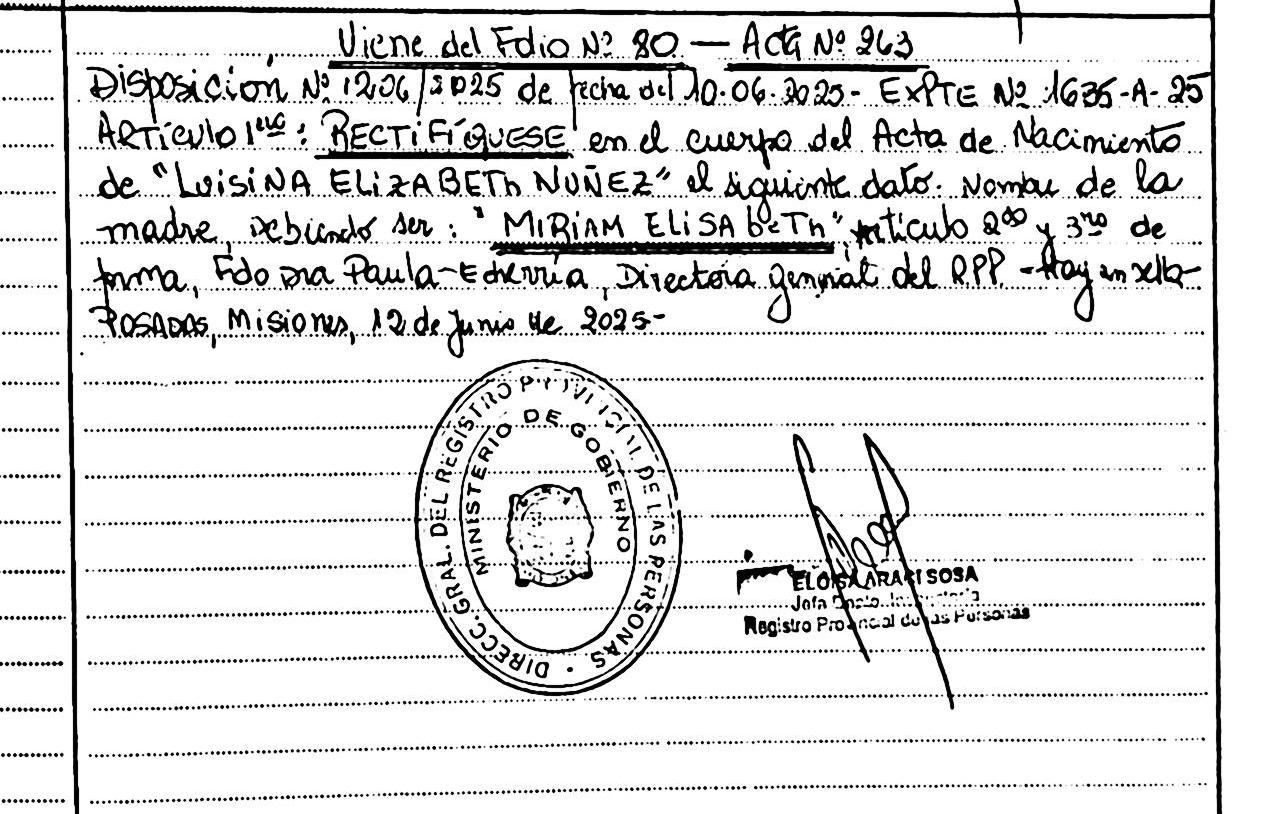 Viene del Folio Nº 80 — Acta Nº 263
Disposición Nº 1206/2025 de fecha del 10.06.2025- EXPTE Nº 1635-A-25
ARTÍCULO 1ero: RECTIFÍQUESE en el cuerpo del Acta de Nacimiento
de "LUISINA ELIZABETH NUÑEZ" el siguiente dato. Nombre de la
madre, debiendo ser: "MIRIAM ELISABETH", Artículo 2do y 3ro de
forma, Fdo Dra Paula Echerría, Directora general del RPP - Hay un sello-
POSADAS, Misiones, 12 de Junio de 2025-
DIRECC. GRAL. DEL REGISTRO PROVINCIAL DE LAS PERSONAS
MINISTERIO DE GOBIERNO
ELOISA ARACI SOSA
Jefa Dpto.
Registro Provincial de las Personas